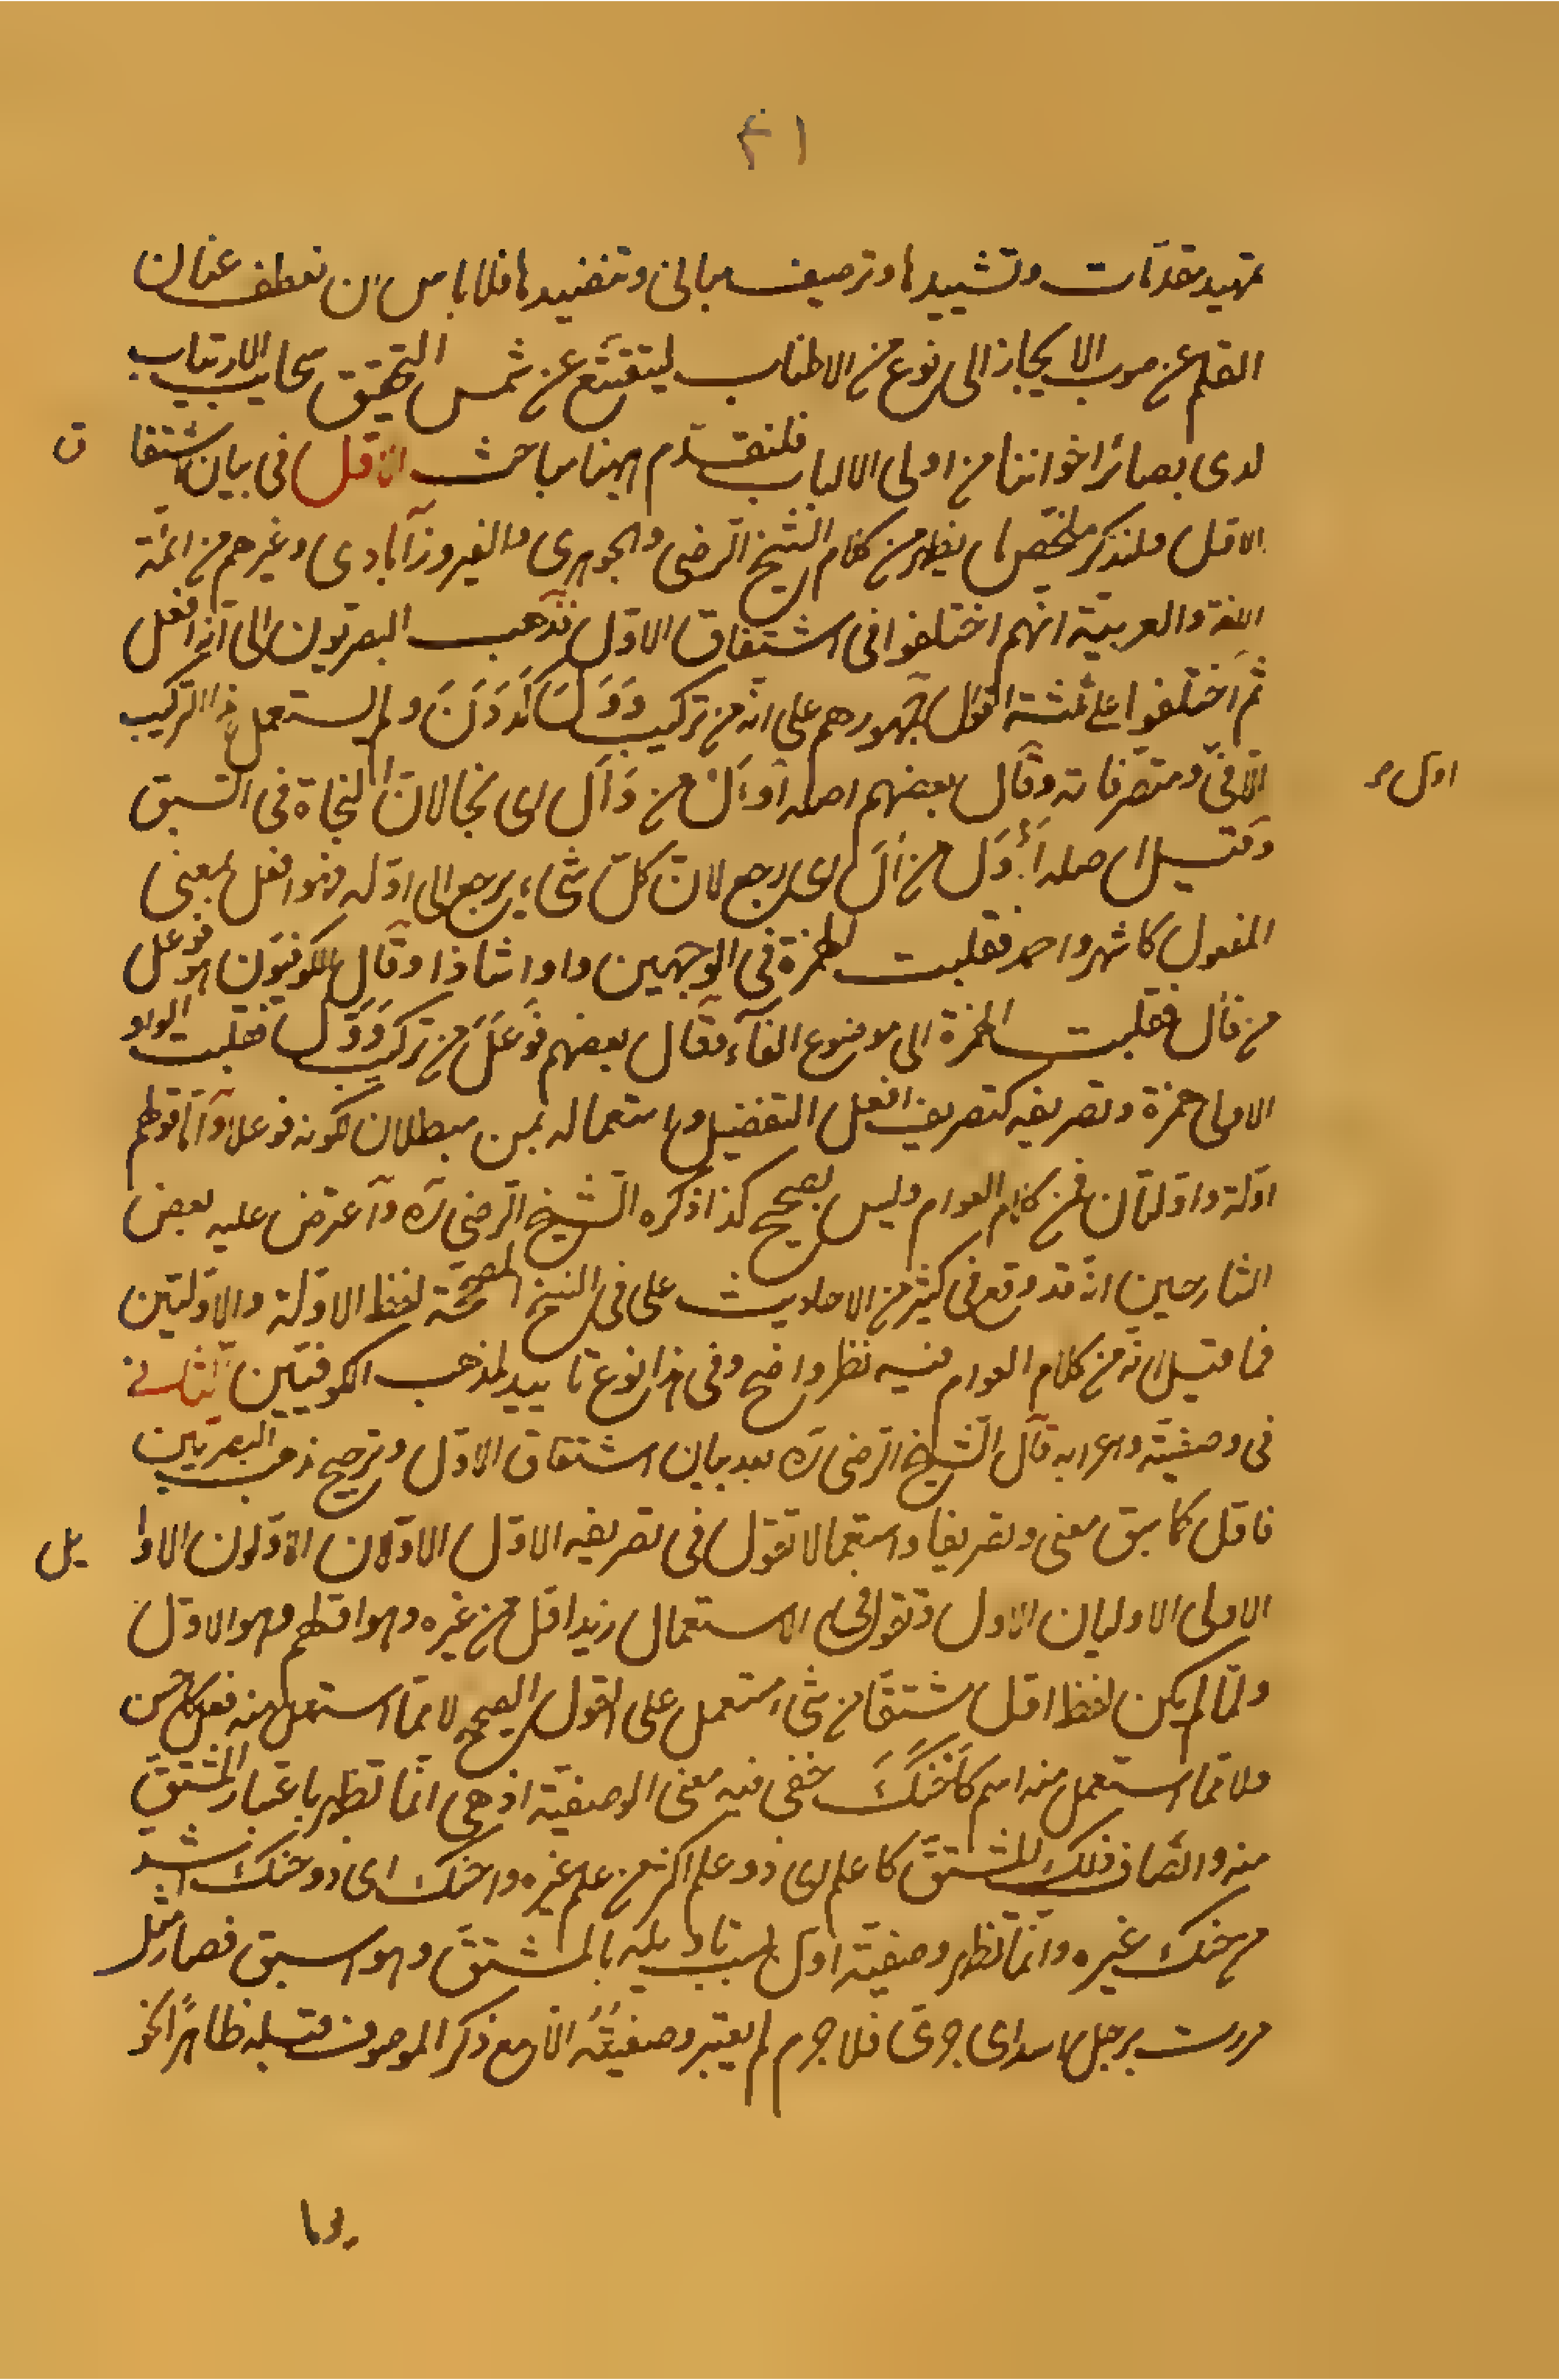 ٤١
تمهيد مقدمات وتشييدها وترصيف مبانى وتنضيدها فلا باس ان نعطف عنان
القلم عن صوب الايجاز الى نوع من الاطناب ليتقشع عن شمس التحقيق سحاب الارتياب
لدى بصائر اخواننا من اولى الالباب فلنقدم ههنا مباحث الاول فى بيان اشتقاق
الاول ولنذكر ملخص ما يظهر من كلام الشيخ الرضى والجوهرى والفيروزآبادى وغيرهم من ائمة
اللغة والعربية انهم اختلفوا فى اشتقاق الاول فذهب البصريون الى انه افعل
ثم اختلفوا على ثلثة اقوال جمهورهم على انه من تركيب وَوَلَ كَدَدَنَ ولم يستعمل هذا التركيب
الا فى اول ومتصرفاته وقال بعضهم اصله أوأَل من وَأَل اى نجا لان النجاة فى السبق
وقيل اصله أَأْوَل من اٰلَ اى رجع لان كل شىء يرجع الى اوله وهو افعل بمعنى
المفعول كاشهر واحمد فقلبت الهمزة فى الوجهين واوا شاذا وقال الكوفيون هو فوعل
من وأل فقلبت الهمزة الى موضع الفآء وقال بعضهم فَوْعَلَ من تركيب وَوَلَ فقلبت الواو
الاولى همزة وتصريفه كتصريف افعل التفضيل واستعماله بمن مبطلان لكونه فوعلا واما قولهم
اولة واولتان فمن كلام العوام وليس بصحيح كذا ذكره الشيخ الرضى ره واعترض عليه بعض
الشارحين انه قد وقع فى كثير من الاحاديث على فى النسخ المصححة لفظ الاولة والاولتين
فما قيل انه من كلام العوام فيه نظر واضح وفى هذا نوع تاييد لمذهب الكوفيين الثانى
فى وصفيته واعرابه قال الشيخ الرضى ره بعد بيان اشتقاق الاول وترجيح مذهب البصريين
فاول كاسبق معنى وتصريفا واستعمالا تقول فى تصريفه الاول الاولان الاولون الاوايل
الاولى الاوليان الاول وتقول فى الاستعمال زيد اول من غيره وهو اولهم وهو الاول
ولما لم يكن لفظ اول مشتقا من شىء مستعمل على القول الصحيح لا مما استعمل منه فعل كاحسن
ولا مما استعمل منه اسم كاَحْنَكَ خفى فيه معنى الوصفية اذ هى انما تظهر باعتبار المشتق
منه واتصاف ذلك المشتق كاعلم اى ذو علم اكثر من علم غيره واحنك اى ذو حنك اشد
من حنك غيره وانما تظهر وصفية اول بسبب تاويله بالمشتق وهو اسبق فصار مثل
مررت برجل اسد اى جرى فلا جرم لم يعتبر وصفيتُهُ الا مع ذكر الموصوف قبله ظاهرًا نحو